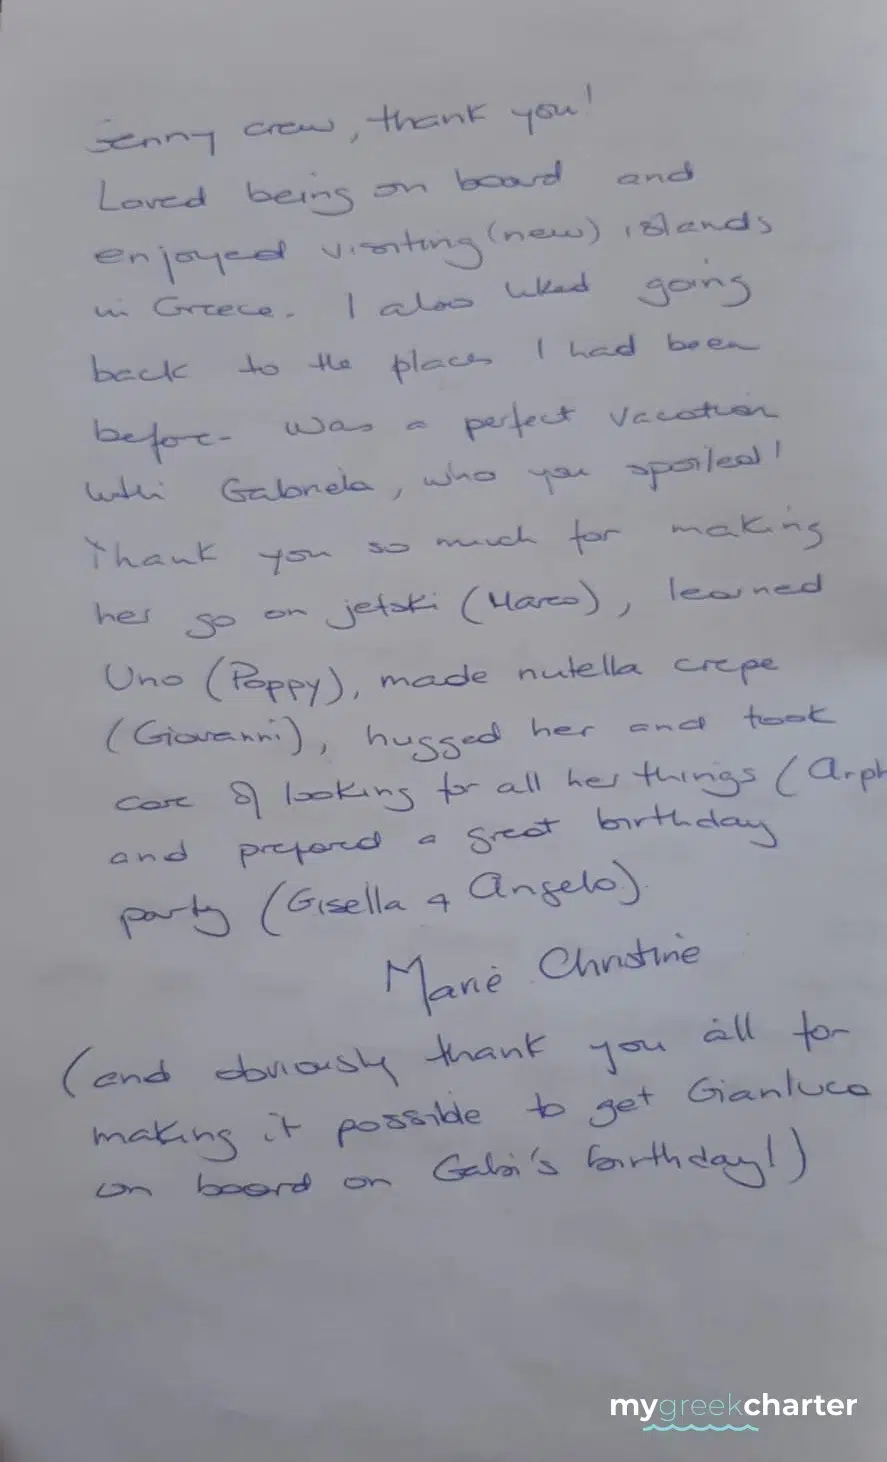 Jenny crew, thank you!
Loved being on board and
enjoyed visiting (new) islands
in Greece. I also liked going
back to the places I had been
before. Was a perfect vacation
with Gabriela, who you spoiled!
Thank you so much for making
her go on jetski (Marco), learned
Uno (Poppy), made nutella crepe
(Giovanni), hugged her and took
care of looking for all her things (Arph
and prepared a great birthday
party (Gisella & Angelo).
Marie Christine
(and obviously thank you all for
making it possible to get Gianluca
on board on Gabi's birthday!)
mygreekcharter